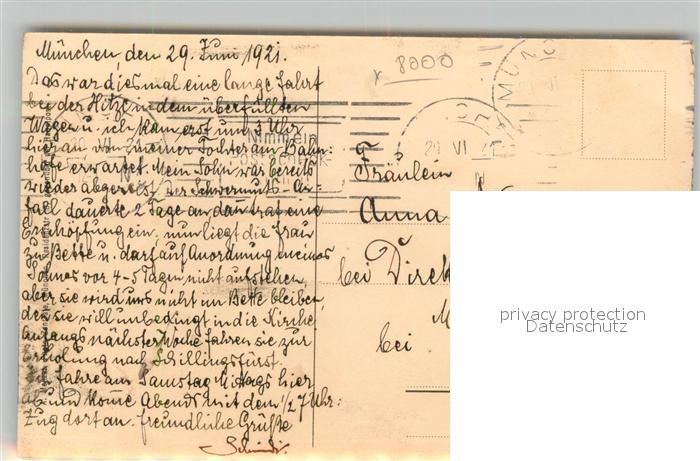 München, den 29. Juni 1921.
Das war diesmal eine lange Fahrt
bei der Hitze in dem überfüllten
Wagen u. ich kam erst um 3 Uhr
hier an von meiner Tochter am Bahn:
hofe erwartet. Mein Sohn war bereits
wieder abgereist. Der Schwermuts-An-
fall dauerte 2 Tage an dann trat eine
Erschöpfung ein, nun liegt die Frau
zu Bette u. darf auf Anordnung meines
Sohnes vor 4-5 Tagen nicht aufstehen,
aber sie wird uns nicht im Bette bleiben,
den sie will unbedingt in die Kirche
Anfangs nächster Woche fahren sie zur
Erholung nach Schillingsfürst.
Ich fahre am Samstag Mittags hier
ab und komme Abends mit dem 1/2 7 Uhr:
Zug dort an. Freundliche Grüße
Schmidt.
8000
MÜN
29 VI
Nimm ein
Fräulein
Anna
bei Direk
M
bei
privacy protection
Datenschutz